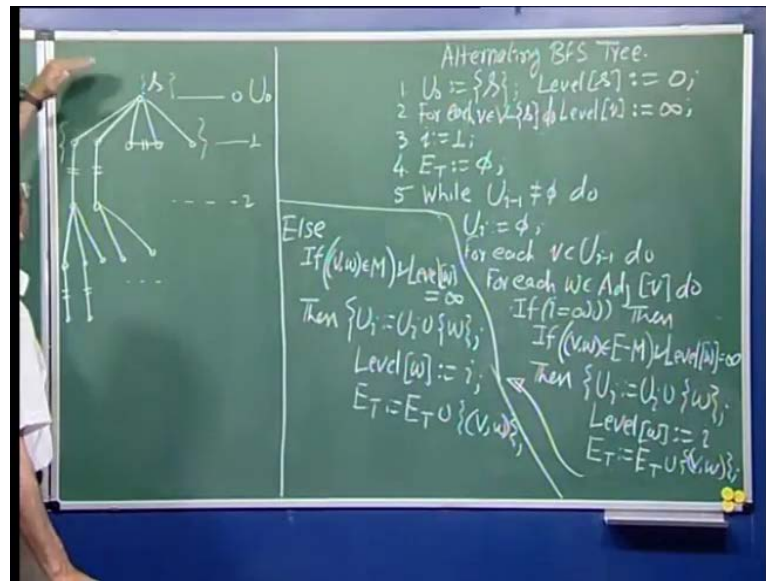 {s} —— 0 U₀
{ } —— 1
- - - - - 2
- - - -
Alternating BFS Tree.
1 U₀ := {s}; Level[s] := 0;
2 For each v∈V-{s} do Level[v] := ∞;
3 i := 1;
4. E_T := φ;
5 While U_{i-1} ≠ φ do
U_i := φ;
For each v∈U_{i-1} do
For each w∈Adj[v] do
If (i=odd) Then
If ((v,w)∈E-M) & Level[w]=∞
Then {U_i := U_i ∪ {w};
Level[w] := i
E_T := E_T ∪ {(v,w)};
Else
If ((v,w)∈M) & Level[w]
= ∞
Then {U_i := U_i ∪ {w};
Level[w] := i;
E_T := E_T ∪ {(v,w)};